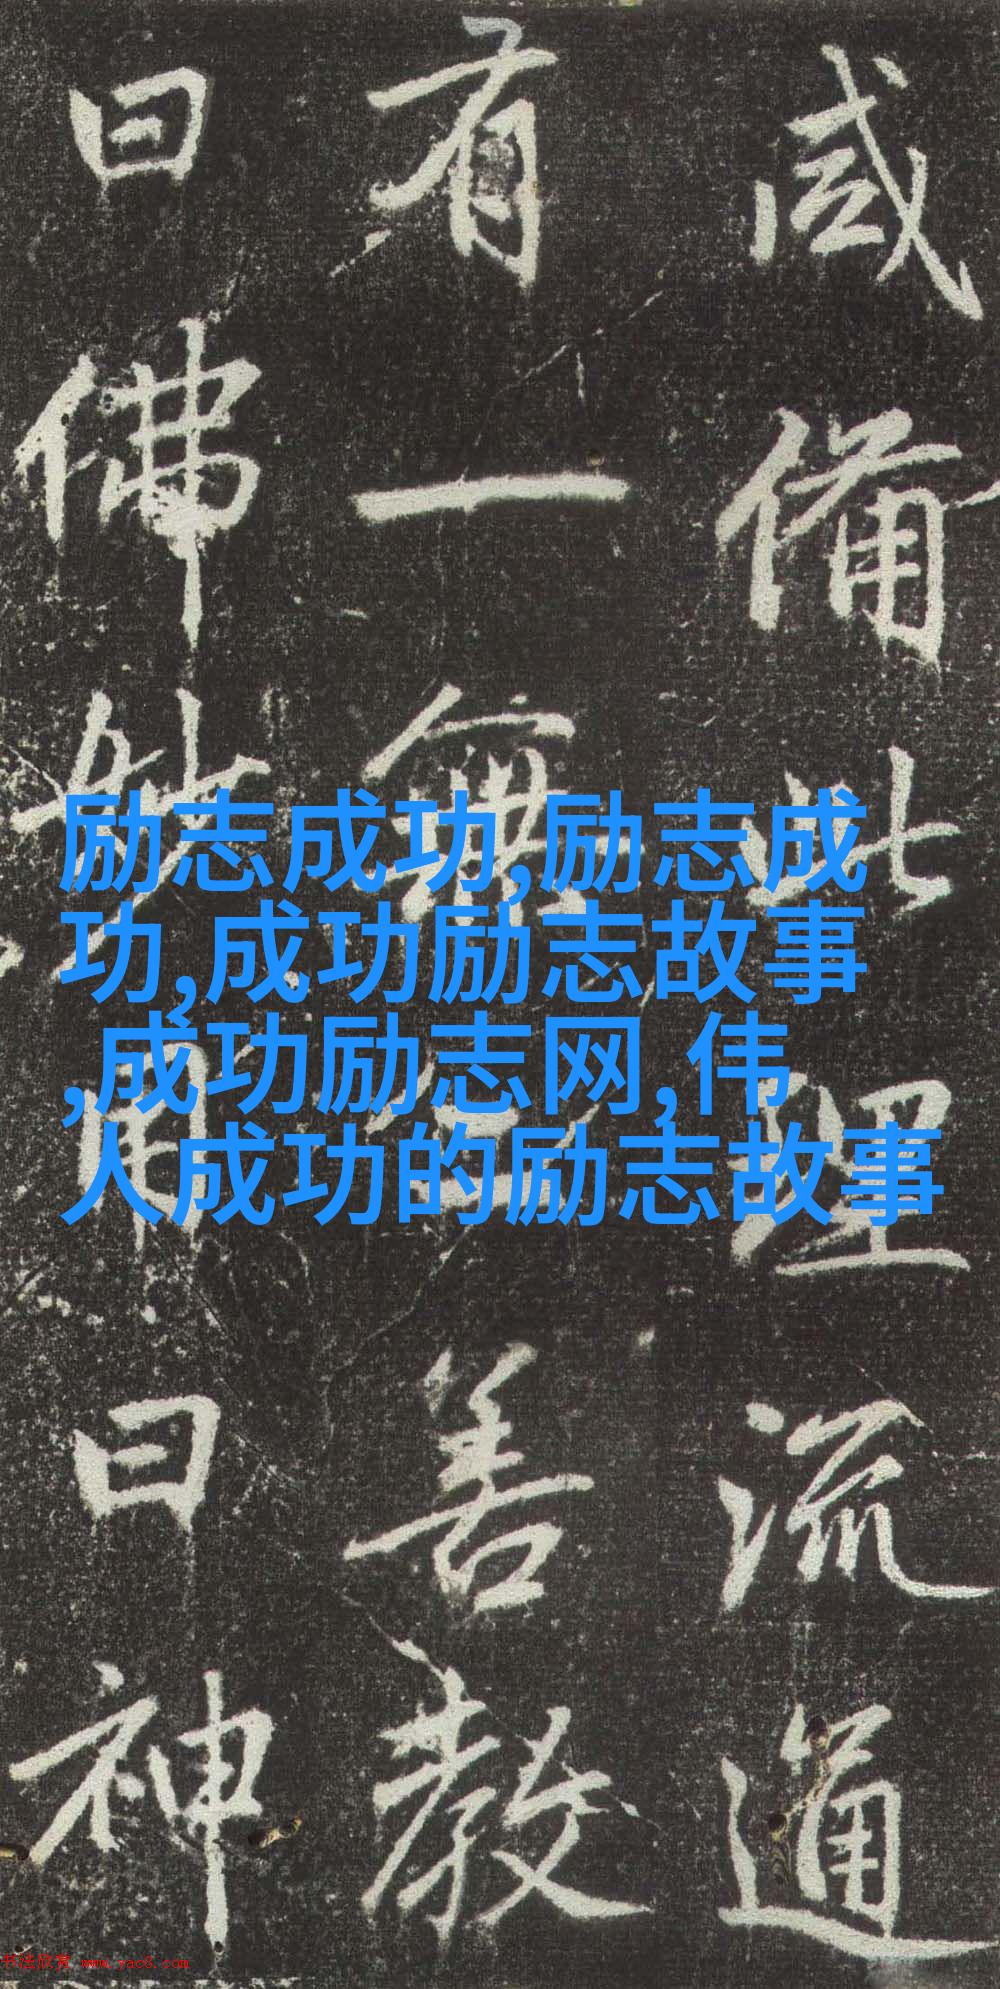 励志成功,励志成
功,成功励志故事
,成功励志网,伟
人成功的励志故事
咸備此理流通
有一無善教
曰佛妙用曰神
书法欣赏 www.yac8.com